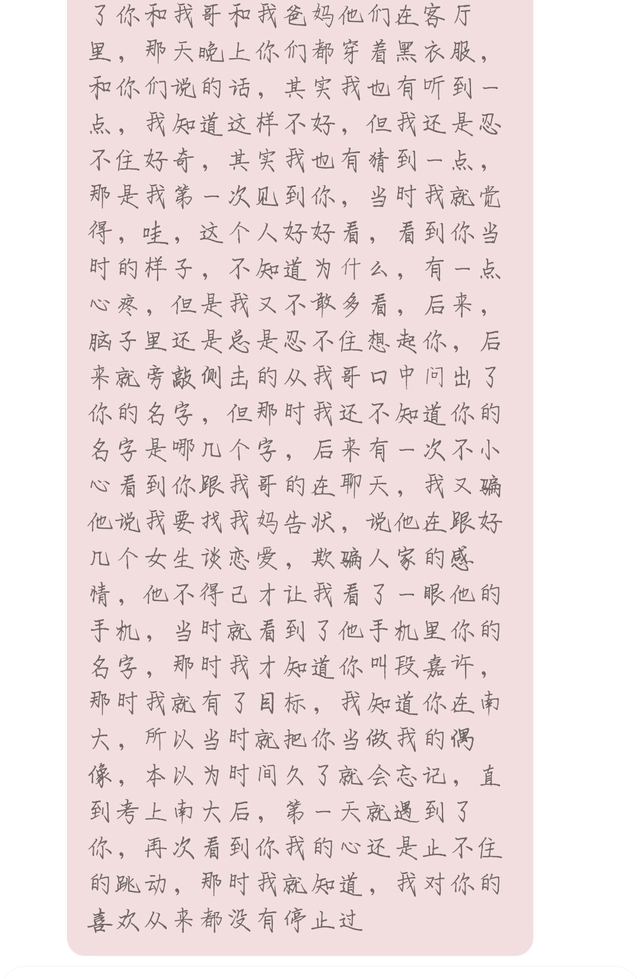 了你和我哥和我爸妈他们在客厅
里，那天晚上你们都穿着黑衣服，
和你们说的话，其实我也有听到一
点，我知道这样不好，但我还是忍
不住好奇，其实我也有猜到一点，
那是我第一次见到你，当时我就觉
得，哇，这个人好好看，看到你当
时的样子，不知道为什么，有一点
心疼，但是我又不敢多看，后来，
脑子里还是总是忍不住想起你，后
来就旁敲侧击的从我哥口中问出了
你的名字，但那时我还不知道你的
名字是哪几个字，后来有一次不小
心看到你跟我哥的在聊天，我又骗
他说我要找我妈告状，说他在跟好
几个女生谈恋爱，欺骗人家的感
情，他不得已才让我看了一眼他的
手机，当时就看到了他手机里你的
名字，那时我才知道你叫段嘉许，
那时我就有了目标，我知道你在南
大，所以当时就把你当做我的偶
像，本以为时间久了就会忘记，直
到考上南大后，第一天就遇到了
你，再次看到你我的心还是止不住
的跳动，那时我就知道，我对你的
喜欢从来都没有停止过